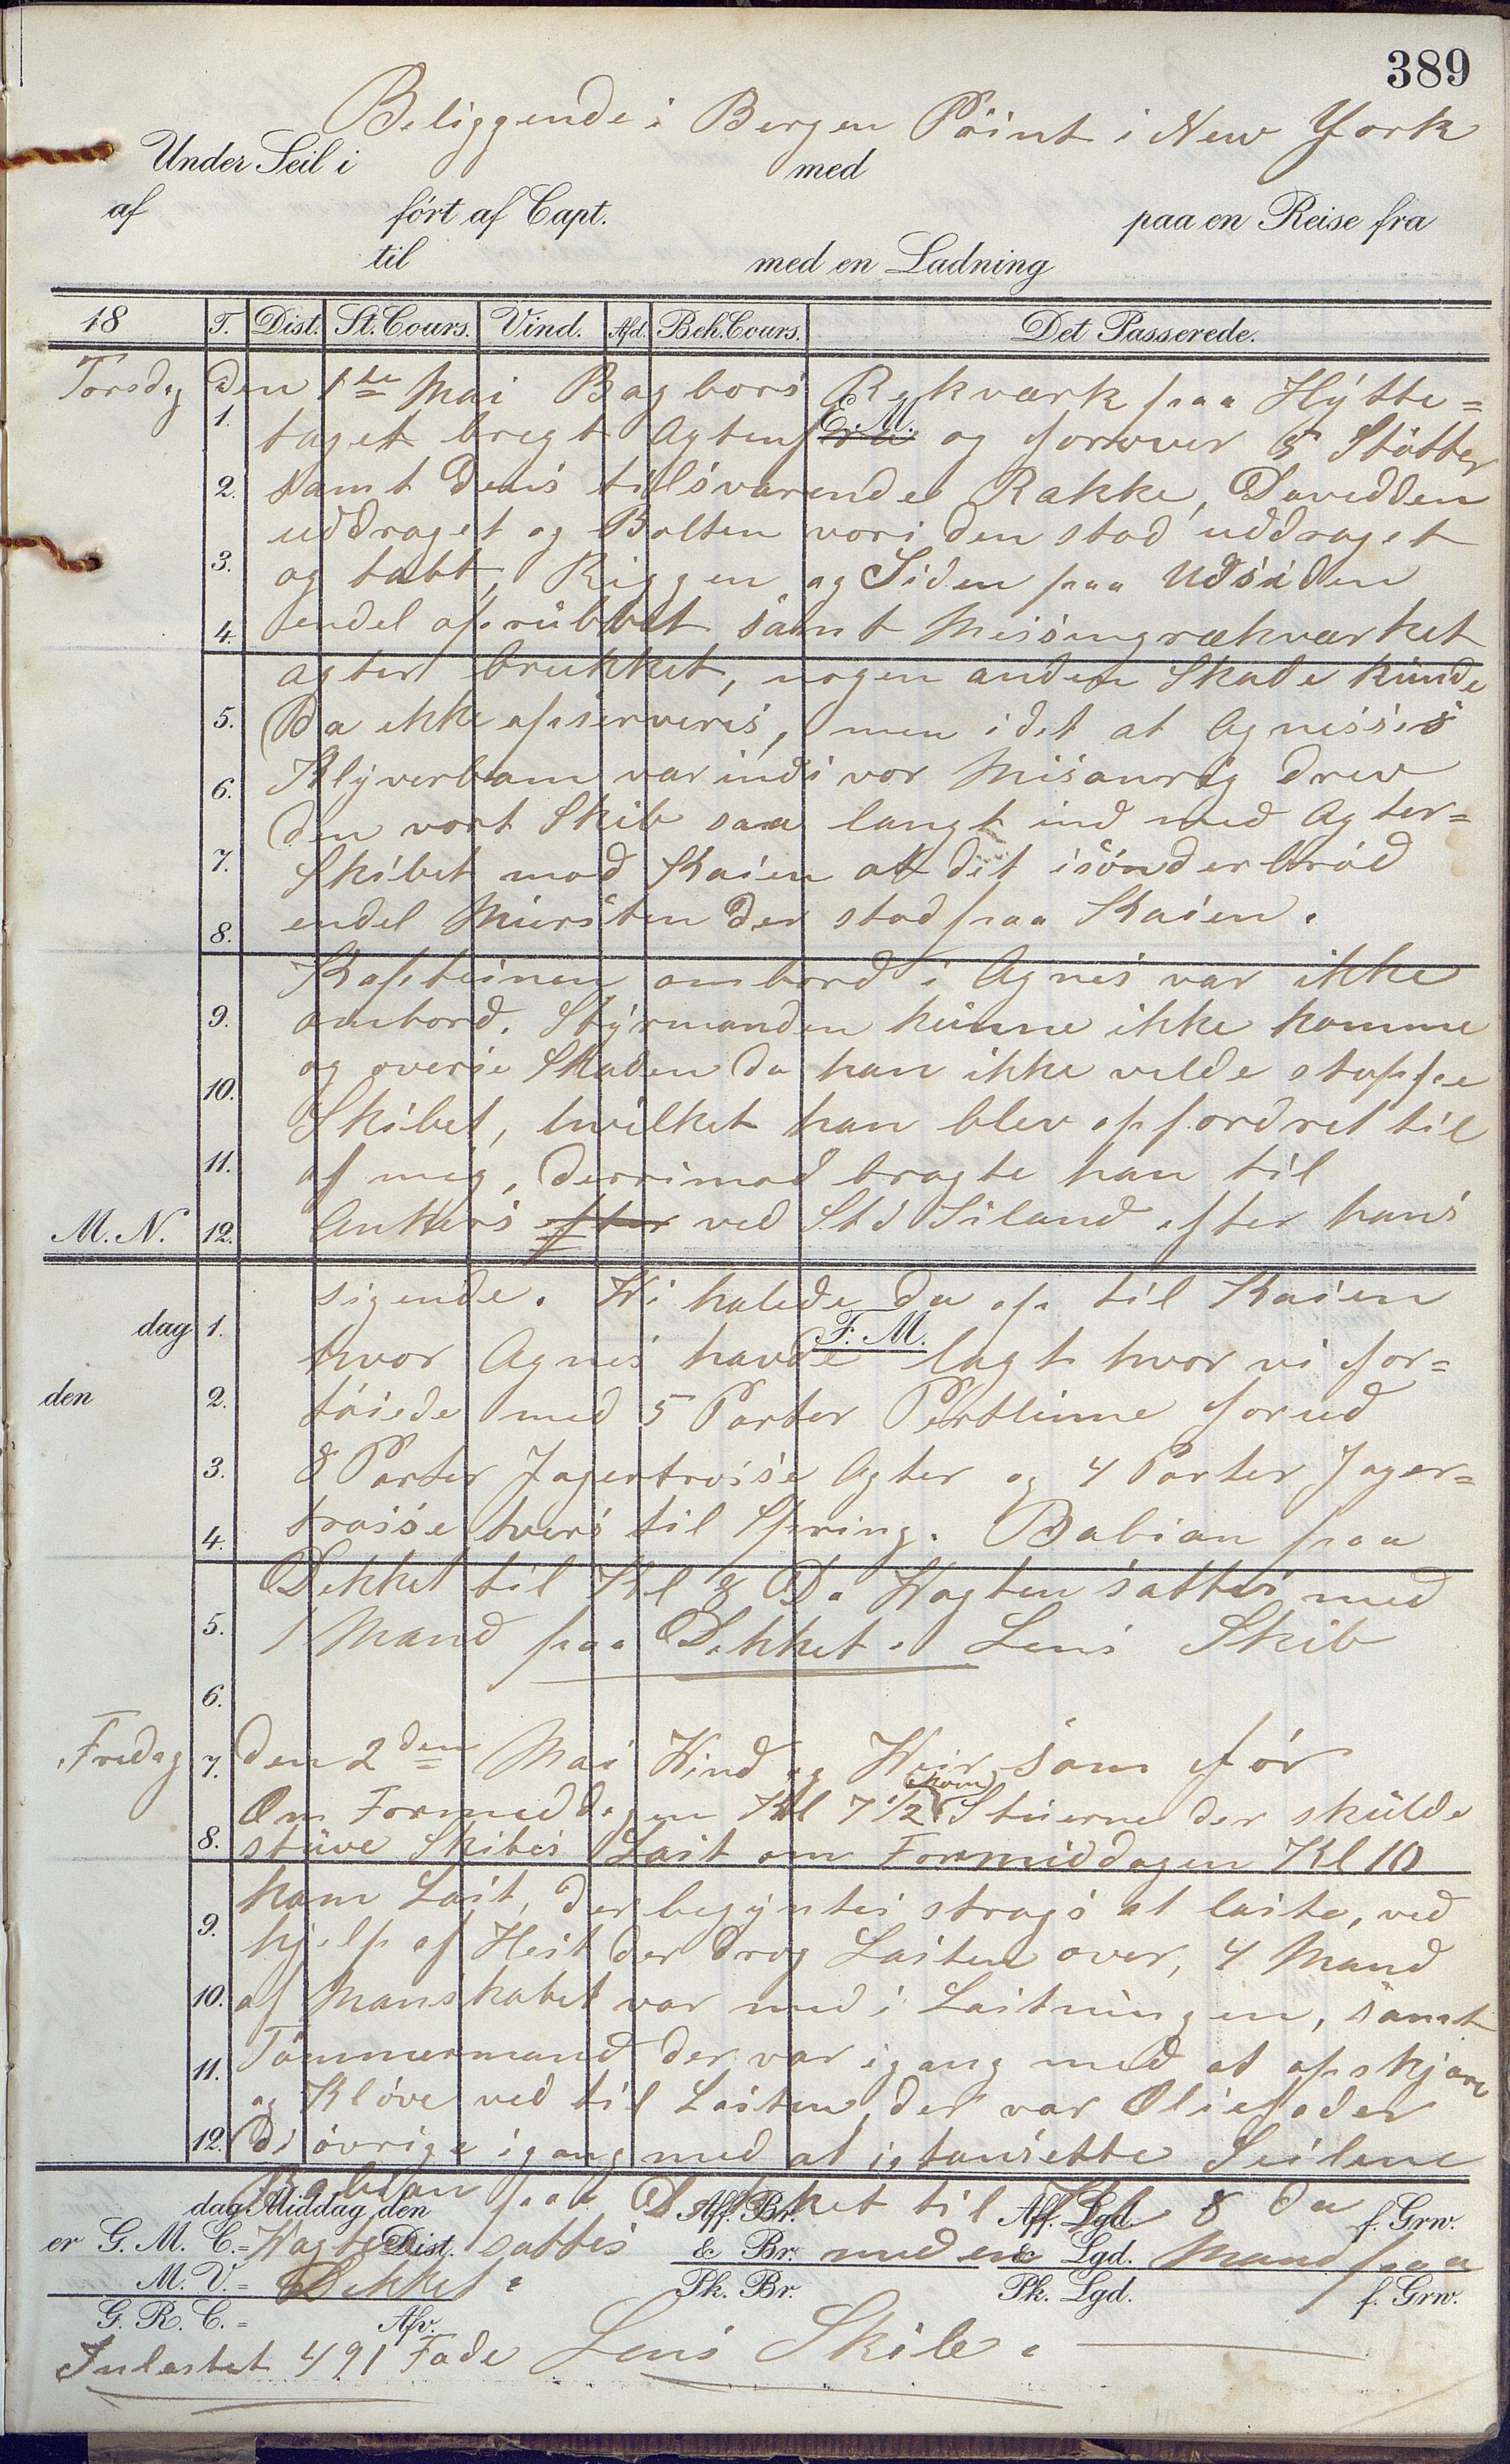 389
Beliggende i Bergen Point i New York
Under Seil i med
af ført af Capt. paa en Reise fra
til med en Ladning
18 T. Dist. St. Cours. Vind. Afd. Beh. Cours. Det Passerede.
Torsdag den 1te Mai Bagbors Rekværk paa Hytte=
E. M.
1. taget bregt Agten og forover 5 Støtter
2. samt dens tilsvarende Rakke, Daveden
uddraget og Bolten vori den stod uddraget
3. og tabt, Riggen og Siden paa Udsiden
4. endel afrubbet samt Messingrækværket
agter brukket, nogen anden Skade kunde
5. Da ikke opserveres, men idet at Agneses
6. Klyverbom var indi vor Misanrig drev
den vort Skib saa langt ind med Agter=
7. Skibet mod Kaien at det isønderbrød
8. endel Mursten der stod paa Kaien.
Kapteinen ombord i Agnes var ikke
9. ombord. Styrmanden kunne ikke komme
og overse Skaden da han ikke vilde stoppe
10. Skibet, hvilket han blev opfordret til
11. af mig, derrimod bragte han til
M. N. 12. Ankers efter ved Std Iiland efter hans
sigende. Wi halede da op til Kaien
F. M.
dag 1. hvor Agnes havde lagt hvor vi for=
den 2. tøiede med 5 Parter Pertlinne forud
3. 8 Parter Jagertrosse Agter og 4 Parter Jager=
4. trosse tvers til Spring. Babian paa
Dekket til Kl 8 Da Wagten sattes med
5. 1 Mand paa Dekket. Lens Skib
6.
Fredag 7. den 2den Mai Wind og Weir som før
kom
Om Formeddagen Kl 7 1/2 Stuerne der skulde
8. stuve Skibes Last om Formiddagen Kl 10
kom Last, der begyntes strags at laste, ved
9. hjelp af Hest der drog Lasten over, 4 Mand
10. af Manskabet var med i Lastningen, samt
11. Tømmermand der var igang med at opskjære
og Kløve ved til Lasten, der var Oliefader
12. Di øvrige igang med at istansette Seilene
Babian paa Dekket til Kl 8 da
dag Middag den Aff. Br. Aff. Lgd. f. Grw.
er G. M. C.= Dist. & Br. & Lgd.
Wagten sattes med en Mand paa
M. V.= Pk. Br. Pk. Lgd. f. Grw.
Dekket.
G. R. C.= Afv.
Inlastet 491 Fade Lens Skib.